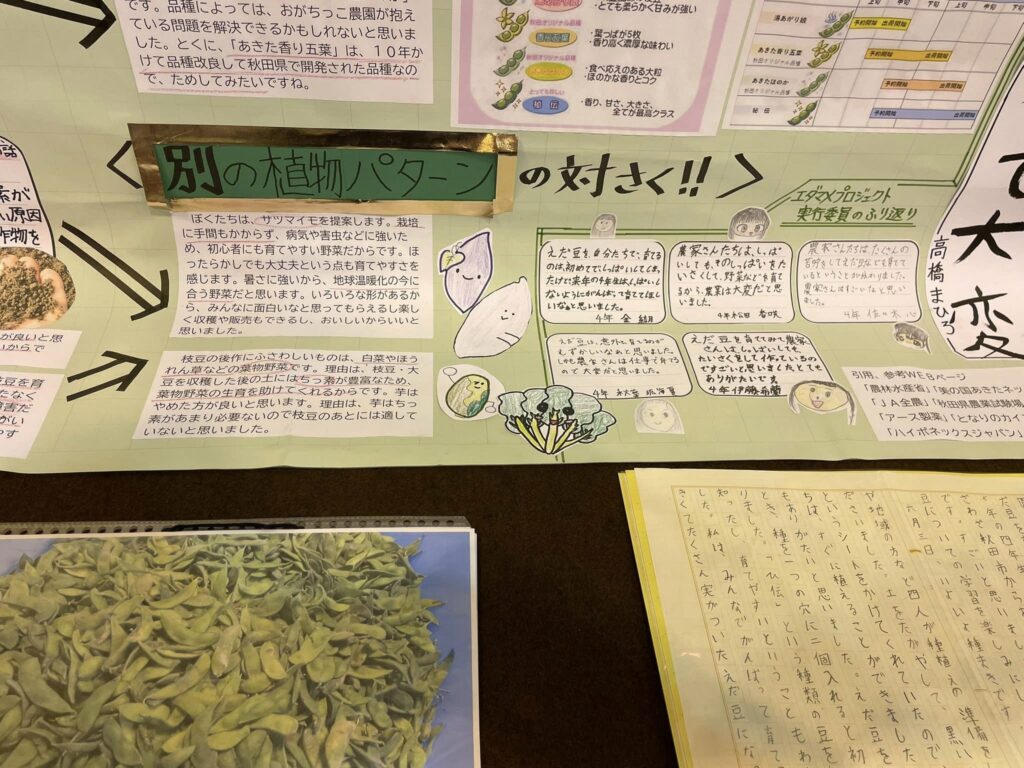 です。品種によっては、おがちっこ農園が抱え
ている問題を解決できるかもしれないと思いま
した。とくに、「あきた香り五葉」は、１０年か
けて品種改良して秋田県で開発された品種なの
で、ためしてみたいですね。
・とても柔らかく甘みが強い
秋田オリジナル品種
・葉っぱが5枚
・香り高く濃厚な味わい
秋田オリジナル品種
・食べ応えのある大粒
・ほのかな香りとコク
とっても珍しい
秘伝
・香り、甘さ、大きさ、
全てが最高クラス
湯あがり娘
予約開始 出荷開始
秋田オリジナル品種
あきた香り五葉
予約開始 出荷開始
秋田オリジナル品種
あきたほのか
予約開始 出荷開始
秘伝
予約開始 出荷開始
別の植物パターン
の対さく!!
ぼくたちは、サツマイモを提案します。栽培
に手間もかからず、病気や害虫などに強いた
め、初心者にも育てやすい野菜だからです。ほ
ったらかしでも大丈夫という点も育てやすさを
感じます。暑さに強いから、地球温暖化の今に
合う野菜だと思います。いろいろな形があるか
ら、みんなに面白いなと思ってもらえるし楽し
く収穫や販売もできるし、おいしいからいいと
思いました。
枝豆の後作にふさわしいものは、白菜やほう
れん草などの葉物野菜です。理由は、枝豆・大
豆を収穫した後の土にはちっ素が豊富なため、
葉物野菜の生育を助けてくれるからです。芋は
やめた方が良いと思います。理由は、芋はちっ
素があまり必要ないので枝豆のあとには適して
いないと思いました。
エダマメプロジェクト
実行委員のふり返り
えだ豆を自分たちで、育てる
のは、初めてで、しっぱいしてしまっ
たけど来年の4年生はしっぱいし
ないようにがんばって育ててほし
いなあと思いました。
農家さんたちは、しっぱ
いしても、そのしっぱいをた
いさくして、野菜などを育て
るから、農業は大変だと思
いました。
農家さんたちは たくさんの
苦労をしてえだ豆などを育てて
いるということが分かりました。
農家さんはすごいなと思いまし
た。
えだ豆は、意外と育てるのが
むずかしいなあと思いました。
しかも農家さんは仕事で育てる
ので大変だと思いました。
えだ豆を育ててみて農家
さんは、しっぱいしても、
たいさくをして作っているの
ですごいと思いました。とても
ありがたいです
4年 伊藤
高橋まひろ
大変
引用、参考WEBページ
「農林水産省」「美の国あきたネッ
「ＪＡ全農」「秋田県農業試験場
「アース製薬」「となりのカイ
「ハイポネックスジャパン」
六月三日、いよいよ種まきです。
や地域の方など四人が種植えの準備を
ださいました。土をたがやして、黒い
というシートをかけてくれていたので
ちは、すぐに植えることができました
もありがたいと思いました。えだ豆を
とき、種を一つの穴に二個入れると初
りました。「ひ伝」という種類の豆を
育てやすいということもわ
した。私は、みんなでがんばって育て
きくてたくさん実がついたえだ豆にな